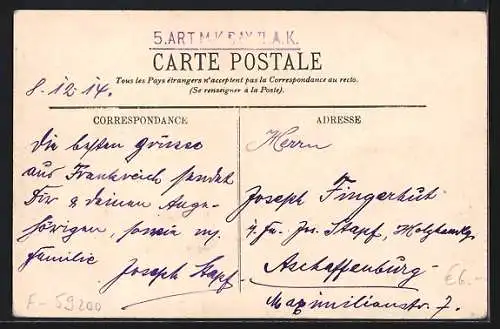 5. ART. M. K. BAY. II. A.K.
CARTE POSTALE
Tous les Pays étrangers n'acceptent pas la Correspondance au recto.
(Se renseigner à la Poste).
8.12.14.
CORRESPONDANCE
ADRESSE
Die besten Grüsse
aus Frankreich sendet
Dir & deinen Ange-
hörigen, sowie m.
Familie
Joseph Stapf
Herrn
Joseph Fingerhut
Jos. Stapf, Holzhandlg.
Aschaffenburg
Maximilianstr. 7.
F-59200
€6.-